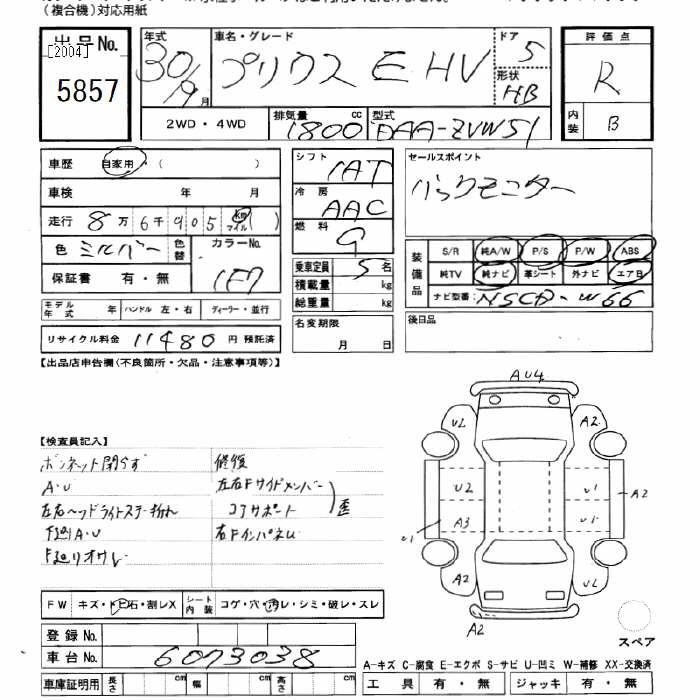 (複合機)対応用紙
出品No.
[2004]
5857
年式
30/9月
車名・グレード
プリウス E HV
ドア
5
形状
HB
評価点
R
内装
B
2WD・4WD
排気量 1800 cc
型式 DAA-ZVW51
車歴 自家用・( )
車検 年 月
走行 8万6千905 km マイル ( )
色 シルバー 色替 カラーNo. 1F7
保証書 有・無
モデル年式 年 ハンドル 左・右 ディーラー・並行
リサイクル料金 11480円 預託済
シフト
IAT
冷房
AAC
燃料
G
乗車定員 5名
積載量 kg
総重量 kg
名変期限
月 日
セールスポイント
バックモニター
装備品
S/R 純A/W P/S P/W ABS
純TV 純ナビ 革シート 外ナビ エアB
ナビ型番: NSCD-W66
後日品
【出品店申告欄(不良箇所・欠品・注意事項等)】
【検査員記入】
ボンネット閉らず
A・U
左右ヘッドライトステー折れ
F廻A・U
F廻りオワレ
修復
左右Fサイドメンバー
コアサポート
歪
右Fインパネル
AU4
UL
A2
U2
U1
A3
U1
A2
U1
A2
UL
A2
スペア
FW キズ・トビ石・割レX
シート内装 コゲ・穴・汚レ・シミ・破レ・スレ
登録No.
車台No. 6073038
車庫証明用 長さ cm 幅 cm 高さ cm
A-キズ C-腐食 E-エクボ S-サビ U-凹ミ W-補修 XX-交換済
工具 有・無 ジャッキ 有・無